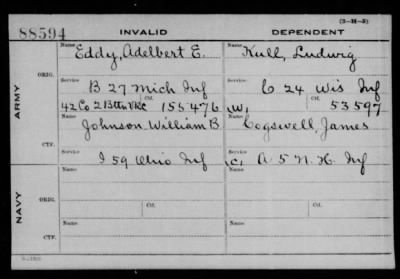 (3-H-5)
88594
INVALID DEPENDENT
Name Eddy, Adelbert E. Name Kull, Ludwig
ORIG.
Service B 27 Mich Inf Service C 24 Wis Inf
ARMY
42 Co 2 Btln VRC Ctf. 155476 W, Ctf. 53597
Name Johnson, William B Name Cogswell, James
CTF.
Service I 59 Ohio Inf Service C, A 5 N.H. Inf
Name Name
NAVY
ORIG. Ctf. Ctf.
Name Name
CTF.